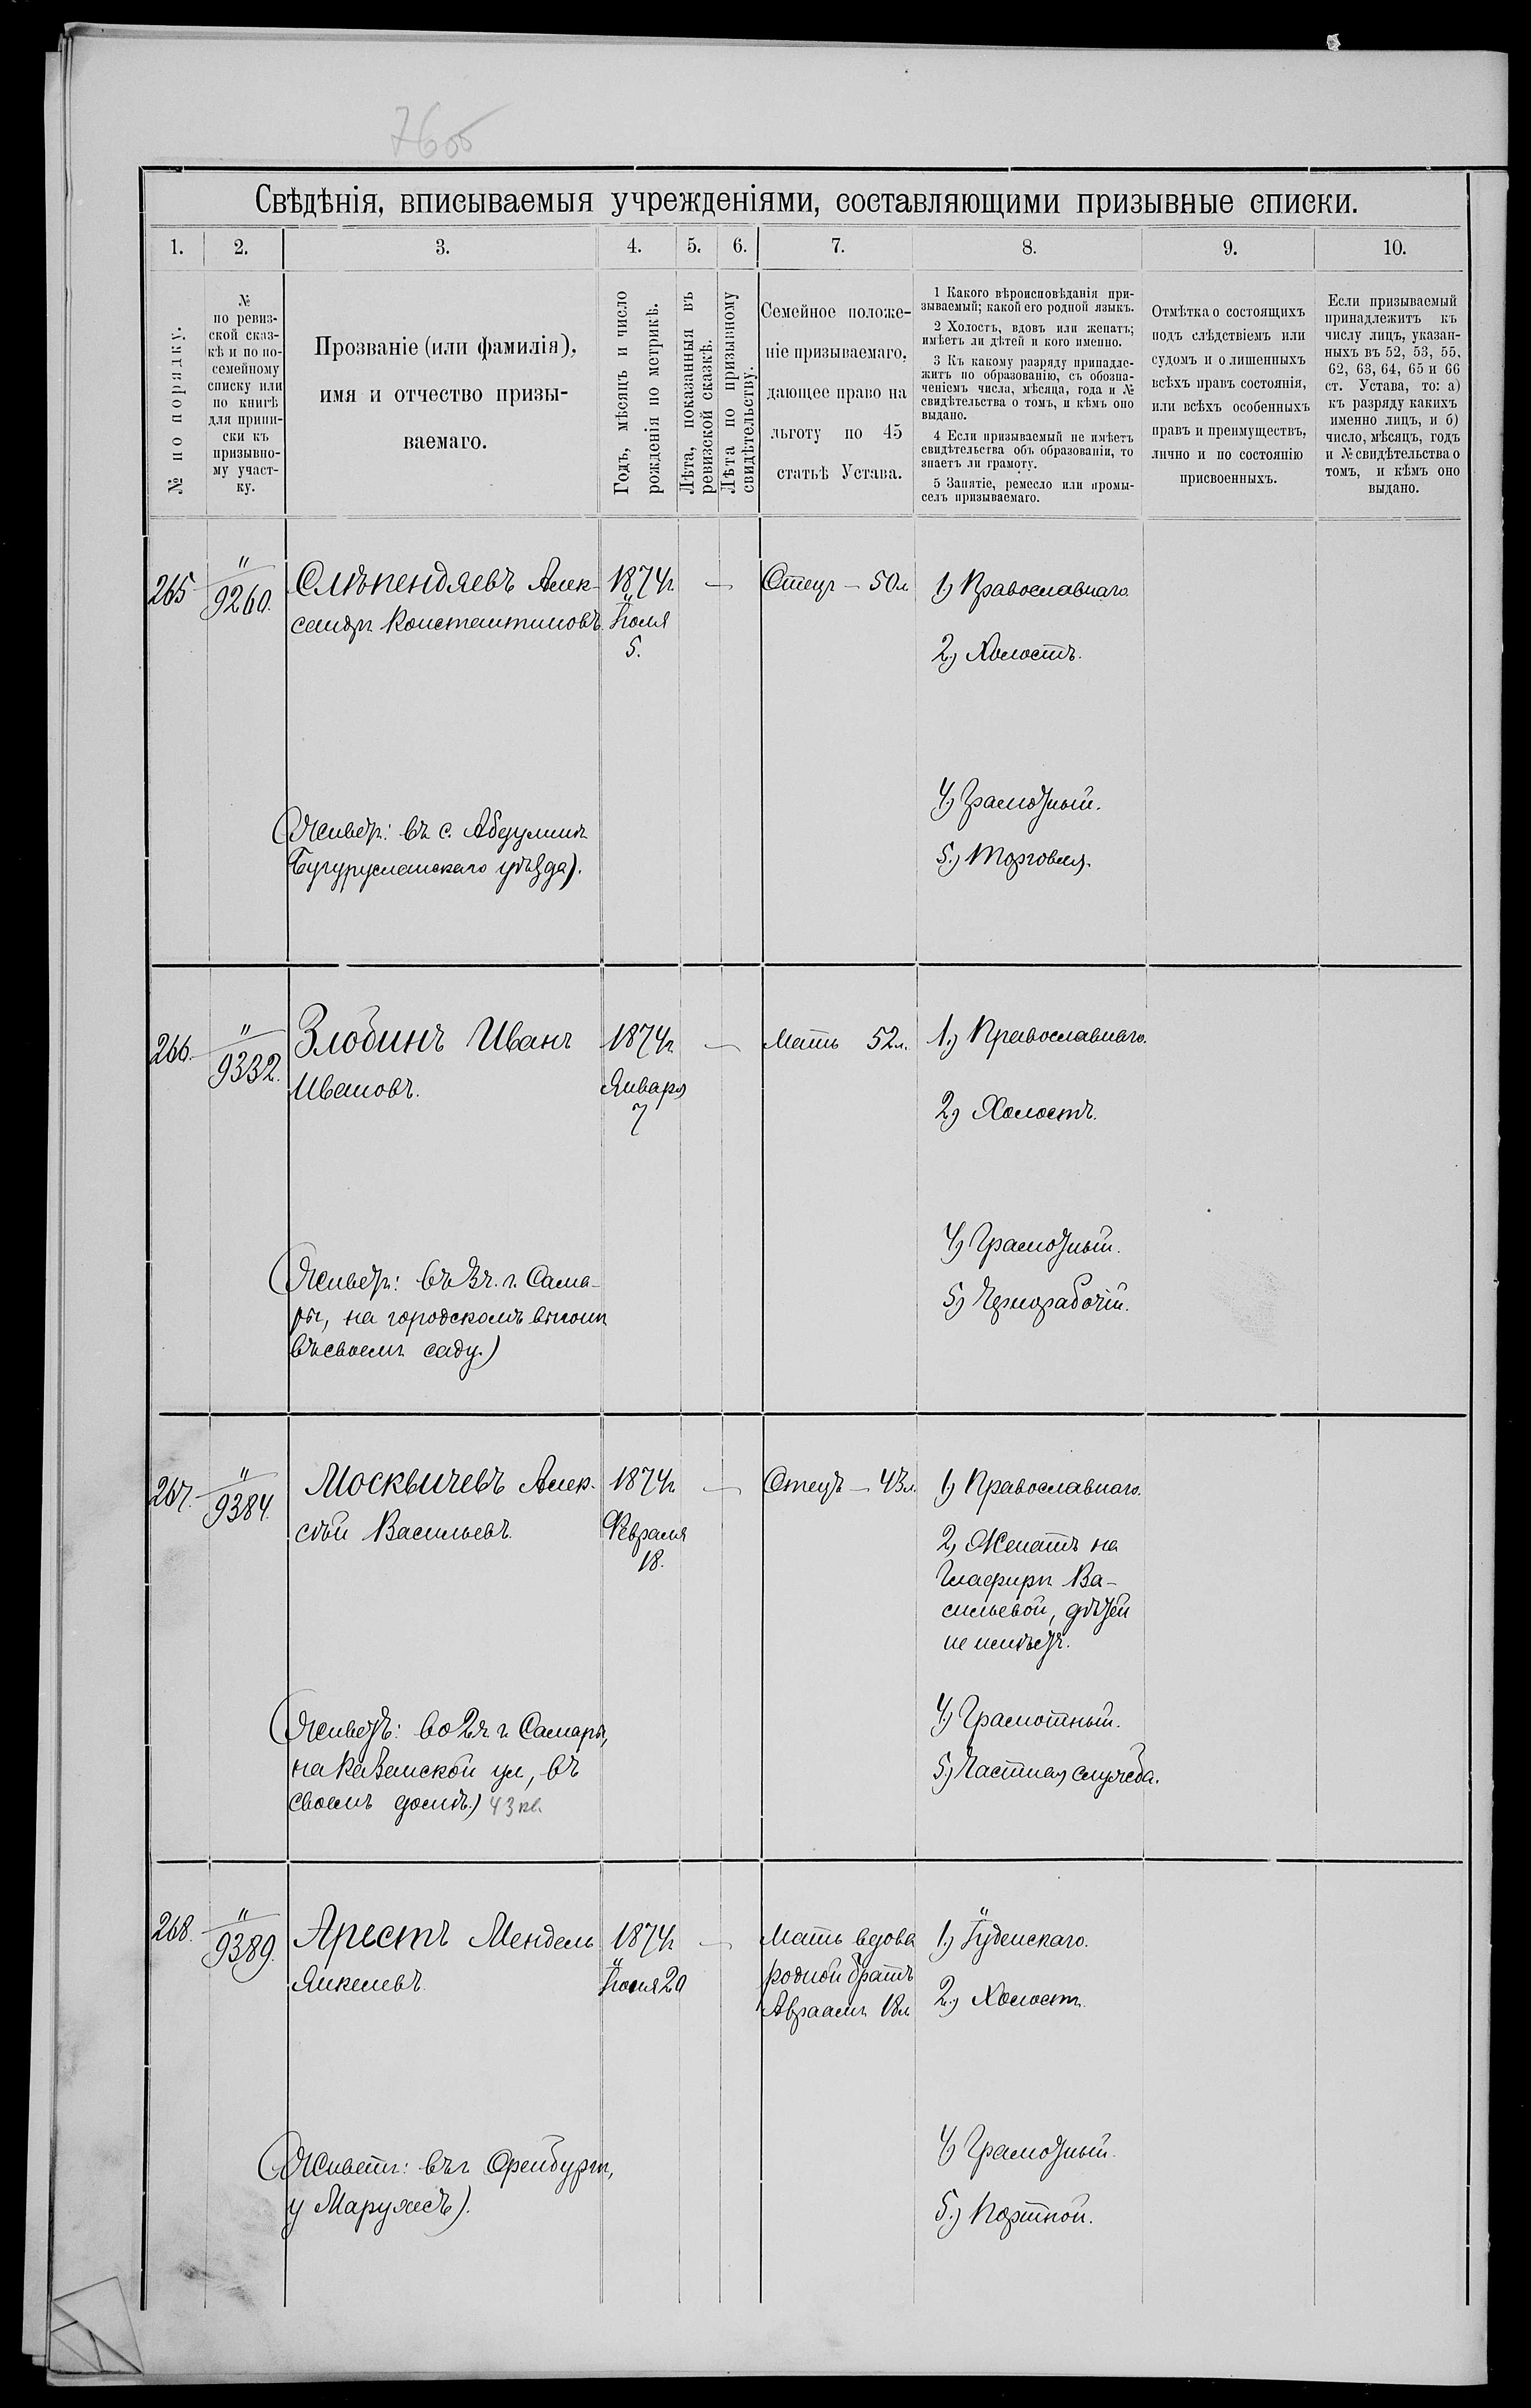 7605
Свѣдѣнія, вписываемыя учрежденіями, составляющими призывные списки.
1. 2. 3. 4. 5. 6. 7. 8. 9. 10.
№ по порядку.
№
по ревиз-
ской сказ-
кѣ и по по-
семейному
списку или
по книгѣ
для припи-
ски къ
призывно-
му участ-
ку.
Прозваніе (или фамилія),
имя и отчество призы-
ваемаго.
Годъ, мѣсяцъ и число
рожденія по метрикѣ.
Лѣта, показанныя въ
ревизской сказкѣ.
Лѣта по призывному
свидѣтельству.
Семейное положе-
ніе призываемаго,
дающее право на
льготу по 45
статьѣ Устава.
1 Какого вѣроисповѣданія при-
зываемый; какой его родной языкъ.
2 Холостъ, вдовъ или женатъ;
имѣетъ ли дѣтей и кого именно.
3 Къ какому разряду принадле-
житъ по образованію, съ обозна-
ченіемъ числа, мѣсяца, года и №
свидѣтельства о томъ, и кѣмъ оно
выдано.
4 Если призываемый не имѣетъ
свидѣтельства объ образованіи, то
знаетъ ли грамоту.
5 Занятіе, ремесло или промы-
селъ призываемаго.
Отмѣтка о состоящихъ
подъ слѣдствіемъ или
судомъ и о лишенныхъ
всѣхъ правъ состоянія,
или всѣхъ особенныхъ
правъ и преимуществъ,
лично и по состоянію
присвоенныхъ.
Если призываемый
принадлежитъ къ
числу лицъ, указан-
ныхъ въ 52, 53, 55,
62, 63, 64, 65 и 66
ст. Устава, то: а)
къ разряду какихъ
именно лицъ, и б)
число, мѣсяцъ, годъ
и № свидѣтельства о
томъ, и кѣмъ оно
выдано.
265 "
9260. Слѣпендяевъ Алек-
сандръ Константиновъ.
1874г.
Іюля
5.
—
Отецъ — 50л.
1) Православнаго.
2) Холостъ.
4) Грамотный.
5) Торговля.
(Живетъ: въ с. Абдулинѣ
Бугурусланскаго уѣзда).
266. "
9332. Злобинъ Иванъ
Ивановъ.
1874г.
Января
7
—
Мать 52л.
1) Православнаго.
2) Холостъ.
4) Грамотный.
5) Чернорабочій.
(Живетъ: въ 3ч. г. Сама-
ры, на городскомъ выгонѣ
въ своемъ саду.)
267. "
9384. Москвичевъ Алек-
сѣй Васильевъ.
1874г.
Февраля
18.
—
Отецъ — 43л.
1) Православнаго.
2) Женатъ на
Глафирѣ Ва-
сильевой, дѣтей
не имѣетъ.
4) Грамотный.
5) Частная служба.
(Живетъ: во 2ч. г. Самары,
на Казанской ул, въ
своемъ домѣ.) 43 кв.
268. "
9389. Арестъ Мендель
Янкелевъ.
1874г.
Іюля 20
—
Мать вдова
родной братъ
Авраамъ 18л
1) Іудейскаго.
2) Холостъ.
4) Грамотный.
5) Портной.
(Живетъ: въ г. Оренбургѣ,
у Маружесъ).